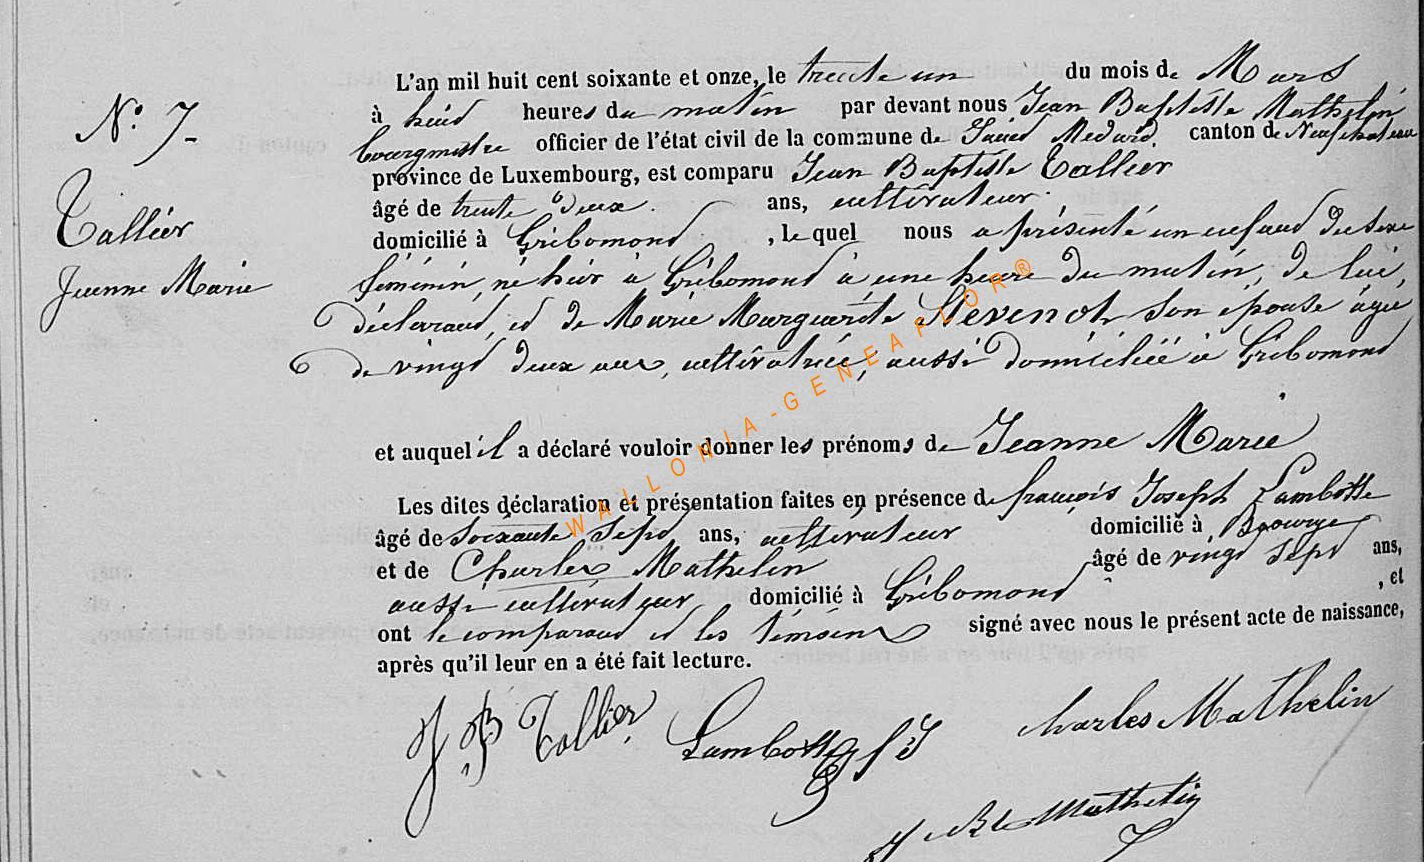 L'an mil huit cent soixante et onze, le trente un du mois de Mars
à huit heures du matin par devant nous Jean Baptiste Mathelin
bourgmestre officier de l'état civil de la commune de Saint Medard, canton de Neufchateau
province de Luxembourg, est comparu Jean Baptiste Tallier
âgé de trente deux ans, cultivateur
domicilié à Gribomont, lequel nous a présenté un enfant du sexe
féminin, né hier à Gribomont à une heure du matin, de lui,
déclarant, et de Marie Marguerite Stevenot son épouse âgée
de vingt deux ans, cultivatrice, aussi domiciliée à Gribomont
et auquel il a déclaré vouloir donner les prénoms de Jeanne Marie
Les dites déclaration et présentation faites en présence de françois Joseph Lambotte
âgé de soixante sept ans, cultivateur domicilié à
et de Charles Mathelin âgé de vingt sept ans,
aussi cultivateur domicilié à Gribomont, et
ont le comparant et les témoins signé avec nous le présent acte de naissance,
après qu'il leur en a été fait lecture.
N° 7
Tallier
Jeanne Marie
J B Tallier
Lambotte f J
Charles Mathelin
J Bte Mathelin
WALLONIA-GENEAFLOR®